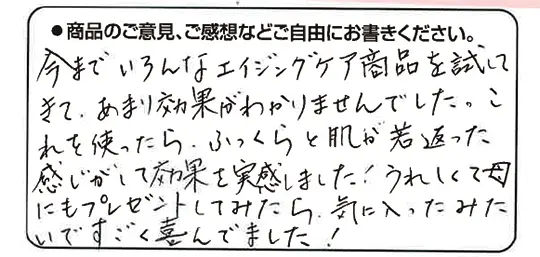 ●商品のご意見、ご感想などご自由にお書きください。
今までいろんなエイジングケア商品を試して
きて、あまり効果がわかりませんでした。こ
れを使ったら、ふっくらと肌が若返った
感じがして効果を実感しました！うれしくて母
にもプレゼントしてみたら、気に入ったみた
いですごく喜んでました！